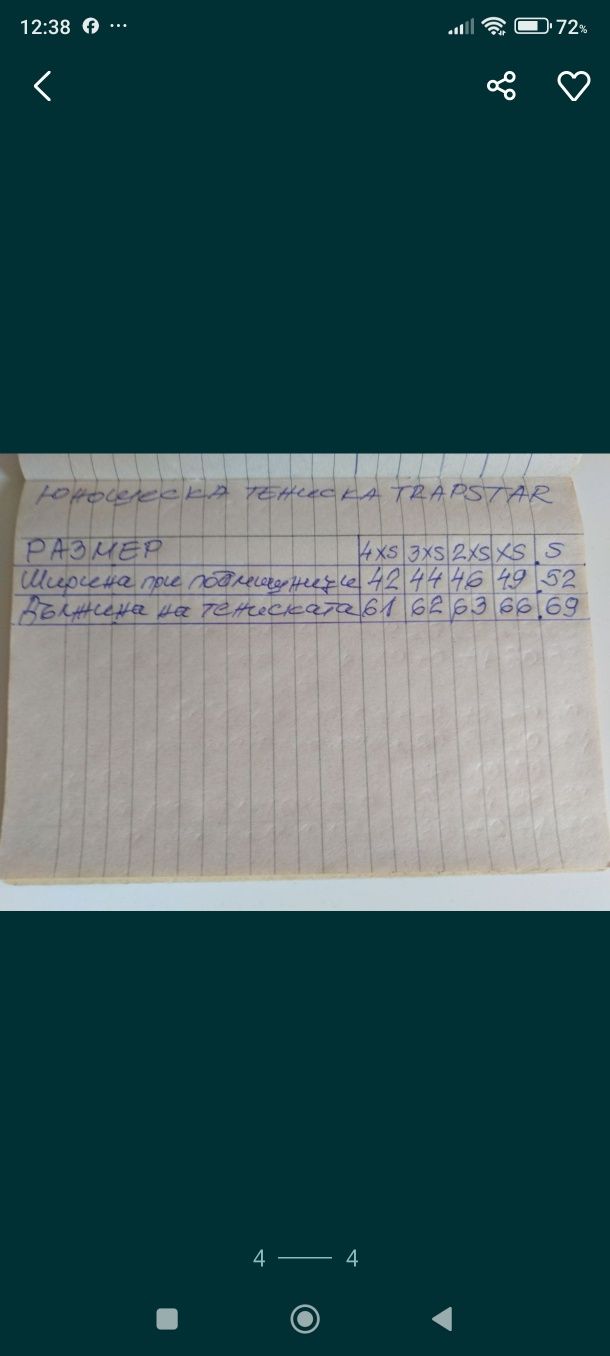 12:38 ... 72%
ЮНОШЕСКА ТЕНИСКА TRAPSTAR
РАЗМЕР 4XS 3XS 2XS XS S
Ширина при подмишниците 42 44 46 49 52
Дължина на тениската 61 62 63 66 69
4 4